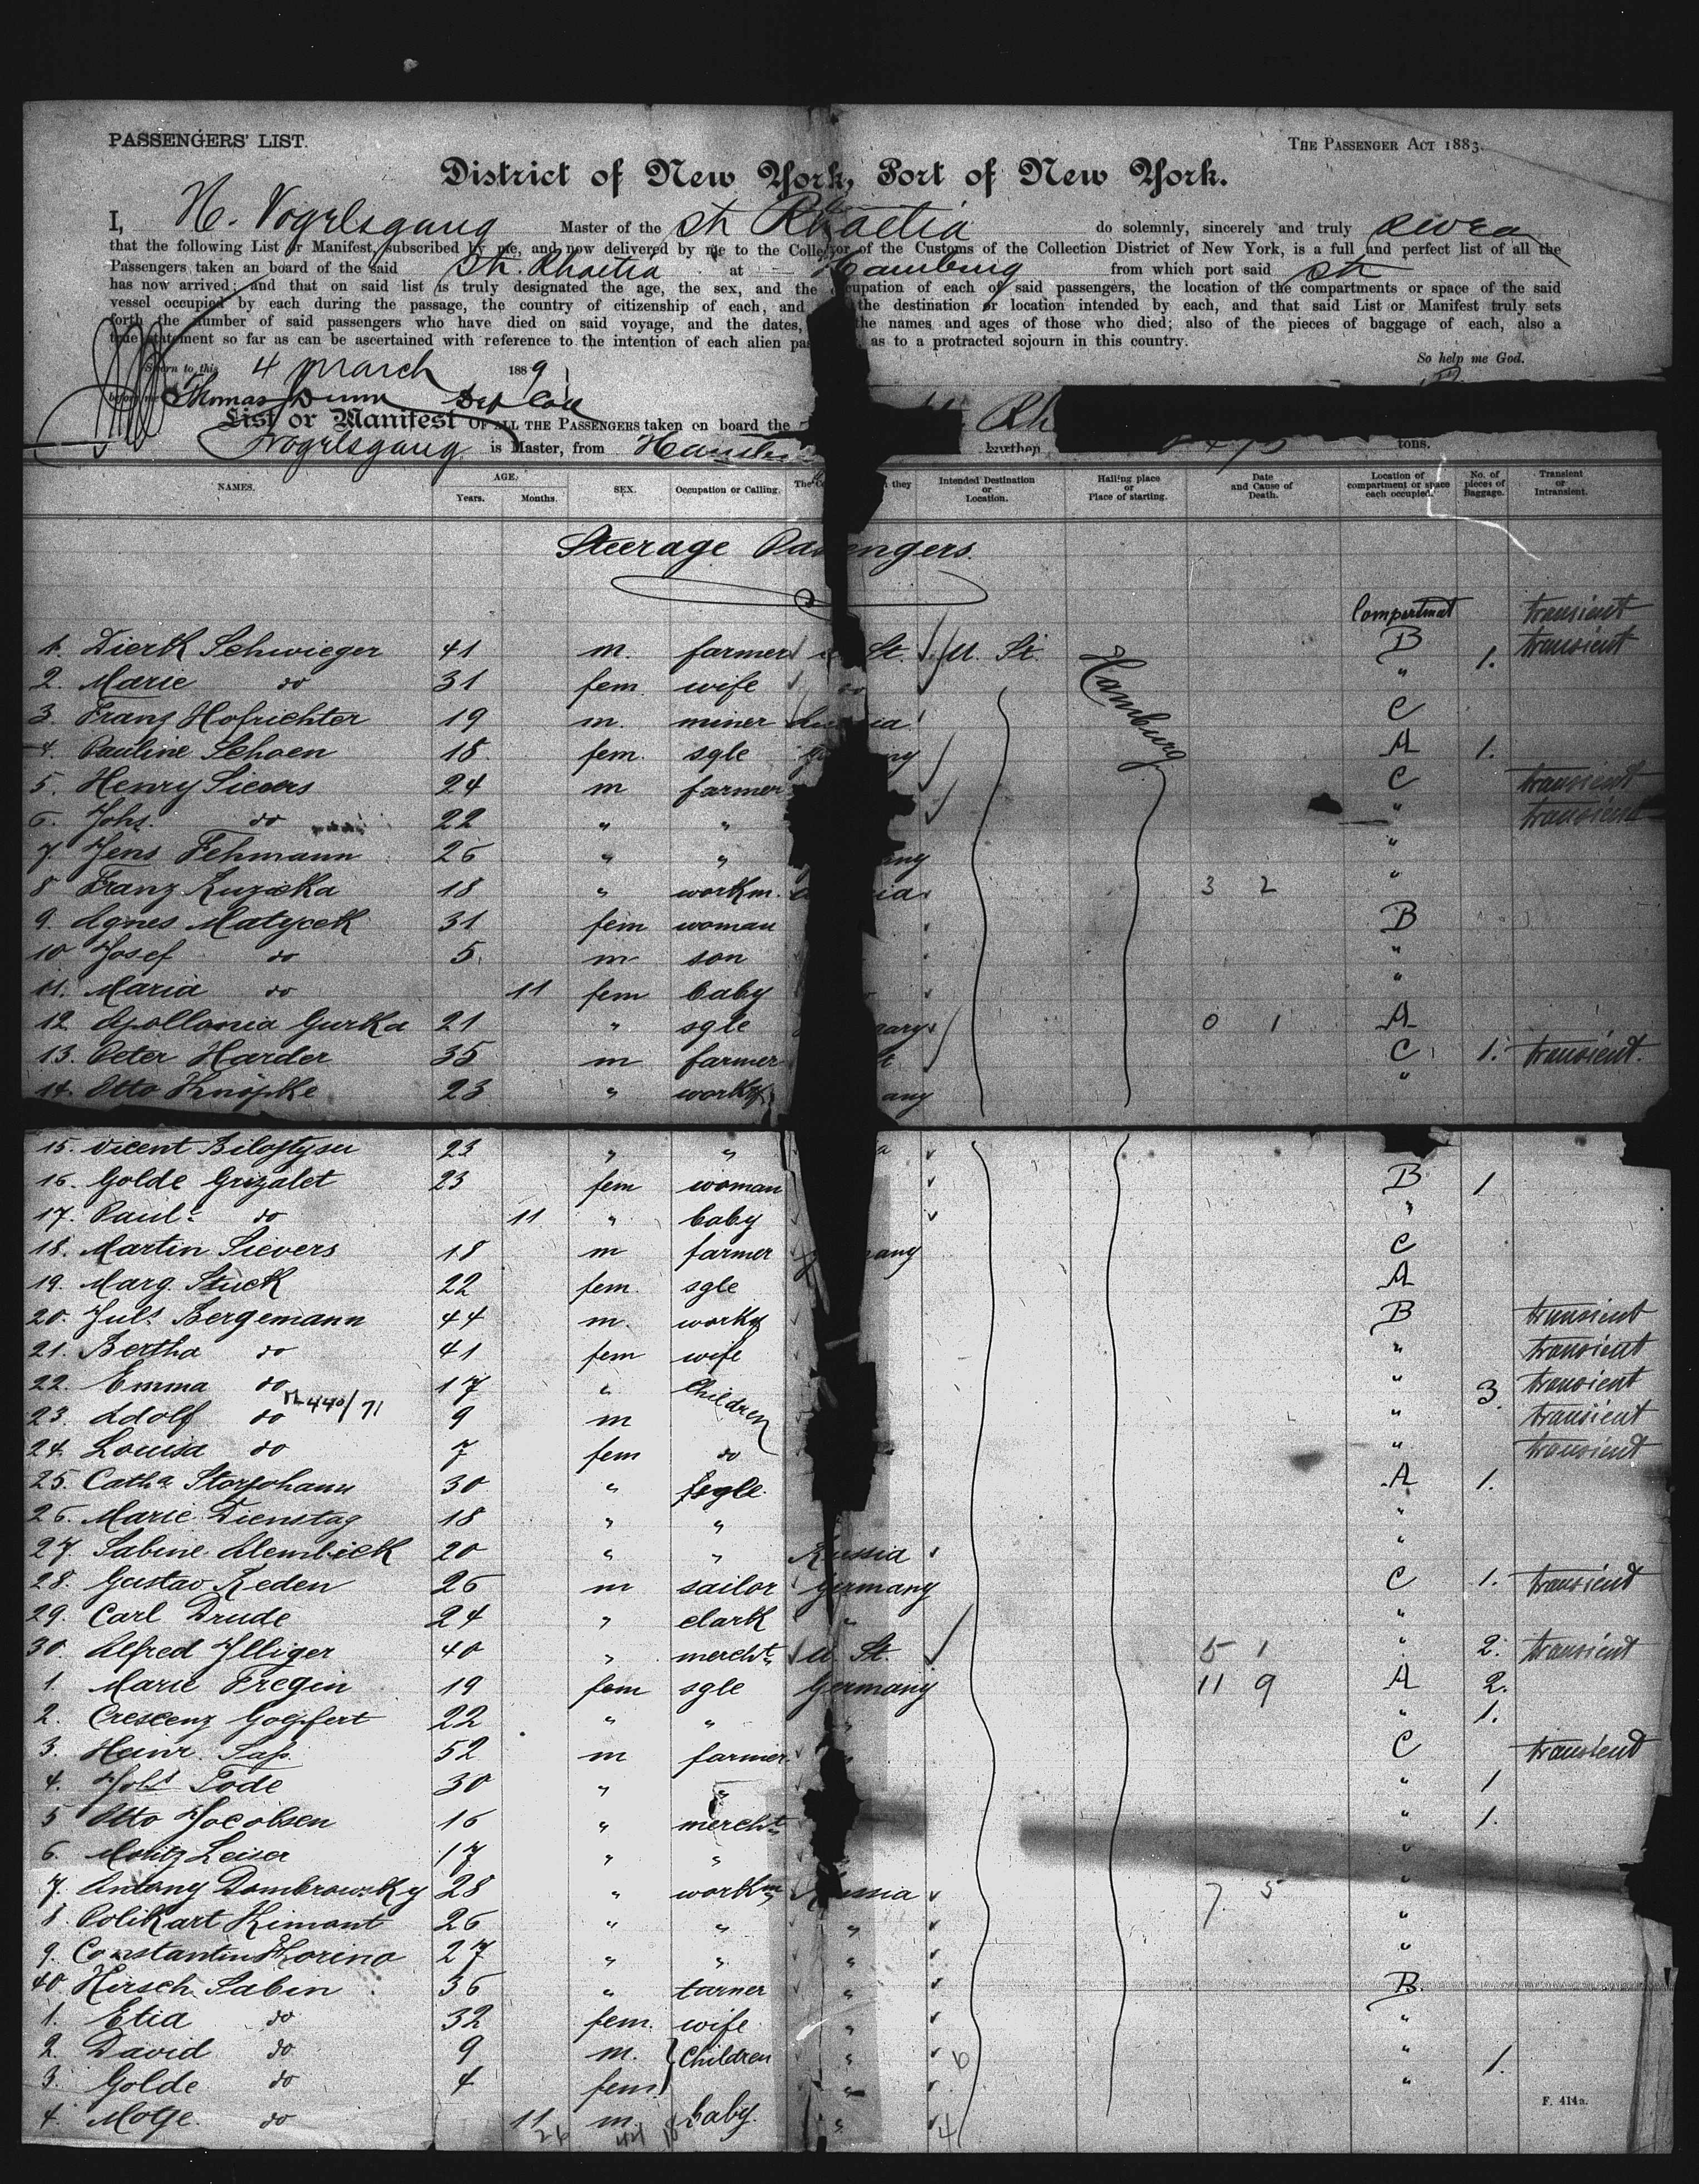 PASSENGERS' LIST.
THE PASSENGER ACT 1883.
District of New York, Port of New York.
I, H. Vogelsgang Master of the St Rhaetia do solemnly, sincerely and truly swear
that the following List or Manifest, subscribed by me, and now delivered by me to the Collector of the Customs of the Collection District of New York, is a full and perfect list of all the
Passengers taken an board of the said St. Rhaetia at Hamburg from which port said St
has now arrived; and that on said list is truly designated the age, the sex, and the occupation of each of said passengers, the location of the compartments or space of the said
vessel occupied by each during the passage, the country of citizenship of each, and the destination or location intended by each, and that said List or Manifest truly sets
forth the number of said passengers who have died on said voyage, and the dates, the names and ages of those who died; also of the pieces of baggage of each, also a
true statement so far as can be ascertained with reference to the intention of each alien pas as to a protracted sojourn in this country.
So help me God.
Sworn to this 4 March 1889
before me Thomas Dunn Dep Coll
List or Manifest OF ALL THE PASSENGERS taken on board the Rh
Vogelsgang is Master, from Hambu burthen tons.
NAMES. AGE. Years. Months. SEX. Occupation or Calling. The Co they Intended Destination or Location. Hailing place or Place of starting. Date and Cause of Death. Location of compartment or space each occupied. No. of pieces of Baggage. Transient or Intransient.
Steerage Passengers.
Compartment transient
1. Dierk Schwieger 41 m. farmer St. U. St. Hamburg B 1. transient
2. Marie do 31 fem. wife do "
3. Franz Hofrichter 19 m. miner ia C
4. Pauline Schoen 18 fem. sgle ny A 1.
5. Henry Sievers 24 m farmer C transient
6. Johs. do 22 " " " transient
7. Jens Fehmann 26 " " any "
8 Franz Ruziska 18 " workm. ia 3 2 "
9. Agnes Matycek 31 fem woman B
10 Josef do 5. m son "
11. Maria do 11 fem baby "
12. Apollonia Gurka 21 " sgle gary 0 1 A
13. Peter Harder 35 m farmer t C 1. transient.
14. Otto Knöpke 23 " workm any "
15. Vicent 23 " " a
16. Golde Grizalet 23 fem woman B 1
17. Paul: do 11 " baby "
18. Martin Sievers 18 m farmer any C
19. Marg. Stuck 22 fem. sgle A
20. Juls. Bergemann 44 m. workm B transient
21. Bertha do 41 fem wife " transient
22. Emma do 17 " Children " 3 transient
23. Adolf do 9 m " transient
24. Louisa do 7 fem do " transient
25. Catha Storjohann 30 " sgle. A 1.
26. Marie Dienstag 18 " " "
27. Sabine Alembick 20 " " Russia "
28. Gustav Reden 26 m sailor Germany C 1. transient
29. Carl Drude 24 " clark " "
30. Alfred Illiger 40 " mercht. U. St. 5 1 " 2. transient
1. Marie Fregin 19 fem sgle Germany 11 9 A 2.
2. Crescenz Goepfert 22 " " " " 1.
3. Heinr. Sass 52 m farmer C transient
4. Johs Tode 30 " " " 1
5 Otto Jacobsen 16 " mercht. " 1.
6. Moritz Leiser 17 " " "
7. Antony Dombrowsky 28 " workm ssia 7 5 "
8. Polikart Kimont 26 " " " "
9. Constantin 27 " " " "
40. Hirsch Sabin 36 " tarner " B.
1. Etia do 32 fem. wife " "
2. David do 9 m. Children " " 1.
3. Golde do 4 fem. " "
4. Motje do 11 m. baby. "
F. 414a.